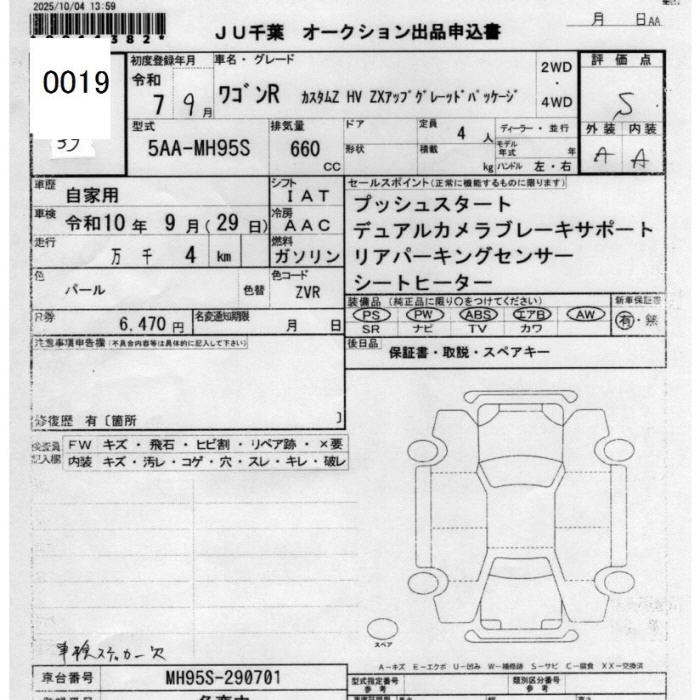 2025/10/04 13:59
月 日AA
JU千葉 オークション出品申込書
0019
初度登録年月
令和
7 9月
車名・グレード
ワゴンR カスタムZ HV ZXアップグレードパッケージ
2WD
・
4WD
評価点
S
外装 内装
A A
型式
5AA-MH95S
排気量
660
CC
ドア
形状
定員
4 人
積載
kg
ディーラー・並行
モデル年式 年
ハンドル 左・右
車歴
自家用
シフト
IAT
車検
令和10年 9月(29日)
冷房
AAC
走行
万 千 4 km
燃料
ガソリン
色
パール
色替
色コード
ZVR
R券
6,470円
名変通知期限
月 日
セールスポイント(正常に機能するものに限ります)
プッシュスタート
デュアルカメラブレーキサポート
リアパーキングセンサー
シートヒーター
装備品(純正品に限り○をつけてください)
PS PW ABS エアB AW
SR ナビ TV カワ
新車保証書
有・無
後日品
保証書・取説・スペアキー
注意事項申告欄(不具合内容等は具体的に記入して下さい)
修復歴 有〔箇所 〕
検査員記入欄
FW キズ・飛石・ヒビ割・リペア跡・×要
内装 キズ・汚レ・コゲ・穴・スレ・キレ・破レ
車検ステッカー欠
スペア
A－キズ E－エクボ U－凹み W－補修跡 S－サビ C－腐食 XX－交換済
車台番号
MH95S-290701
型式指定番号
参考
類別区分番号
参考